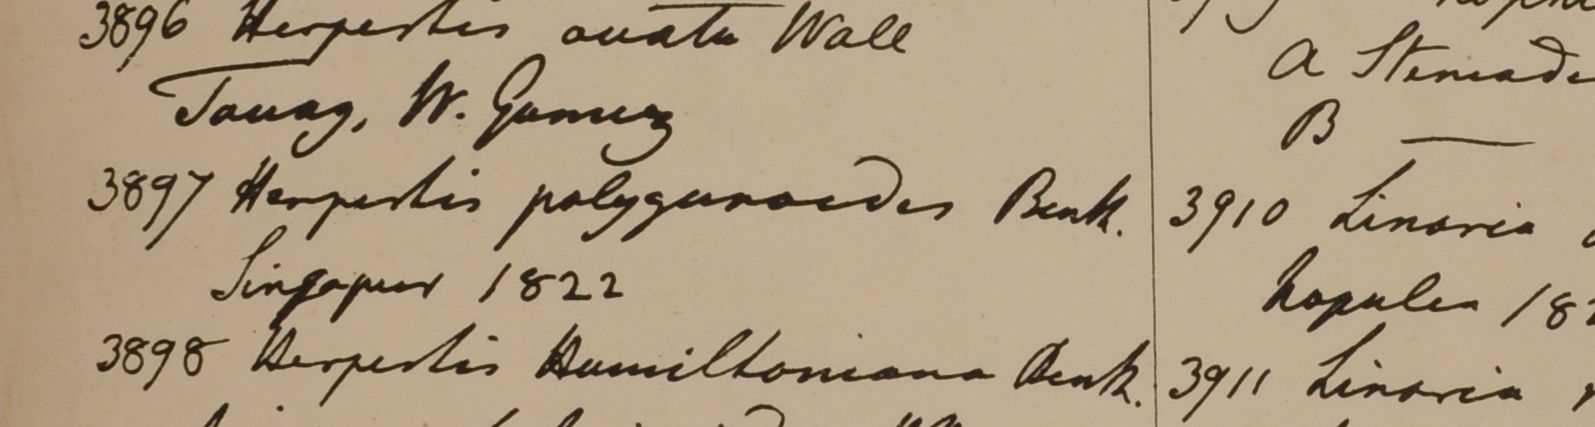 3896 Herpestis ovata Wall
Tavay, W. Gomez
3897 Herpestis polygonoides Benth.
Singapur 1822
3898 Herpestis Hamiltoniana Benth.
A
B —
3910 Linaria
Napalia 182
3911 Linaria